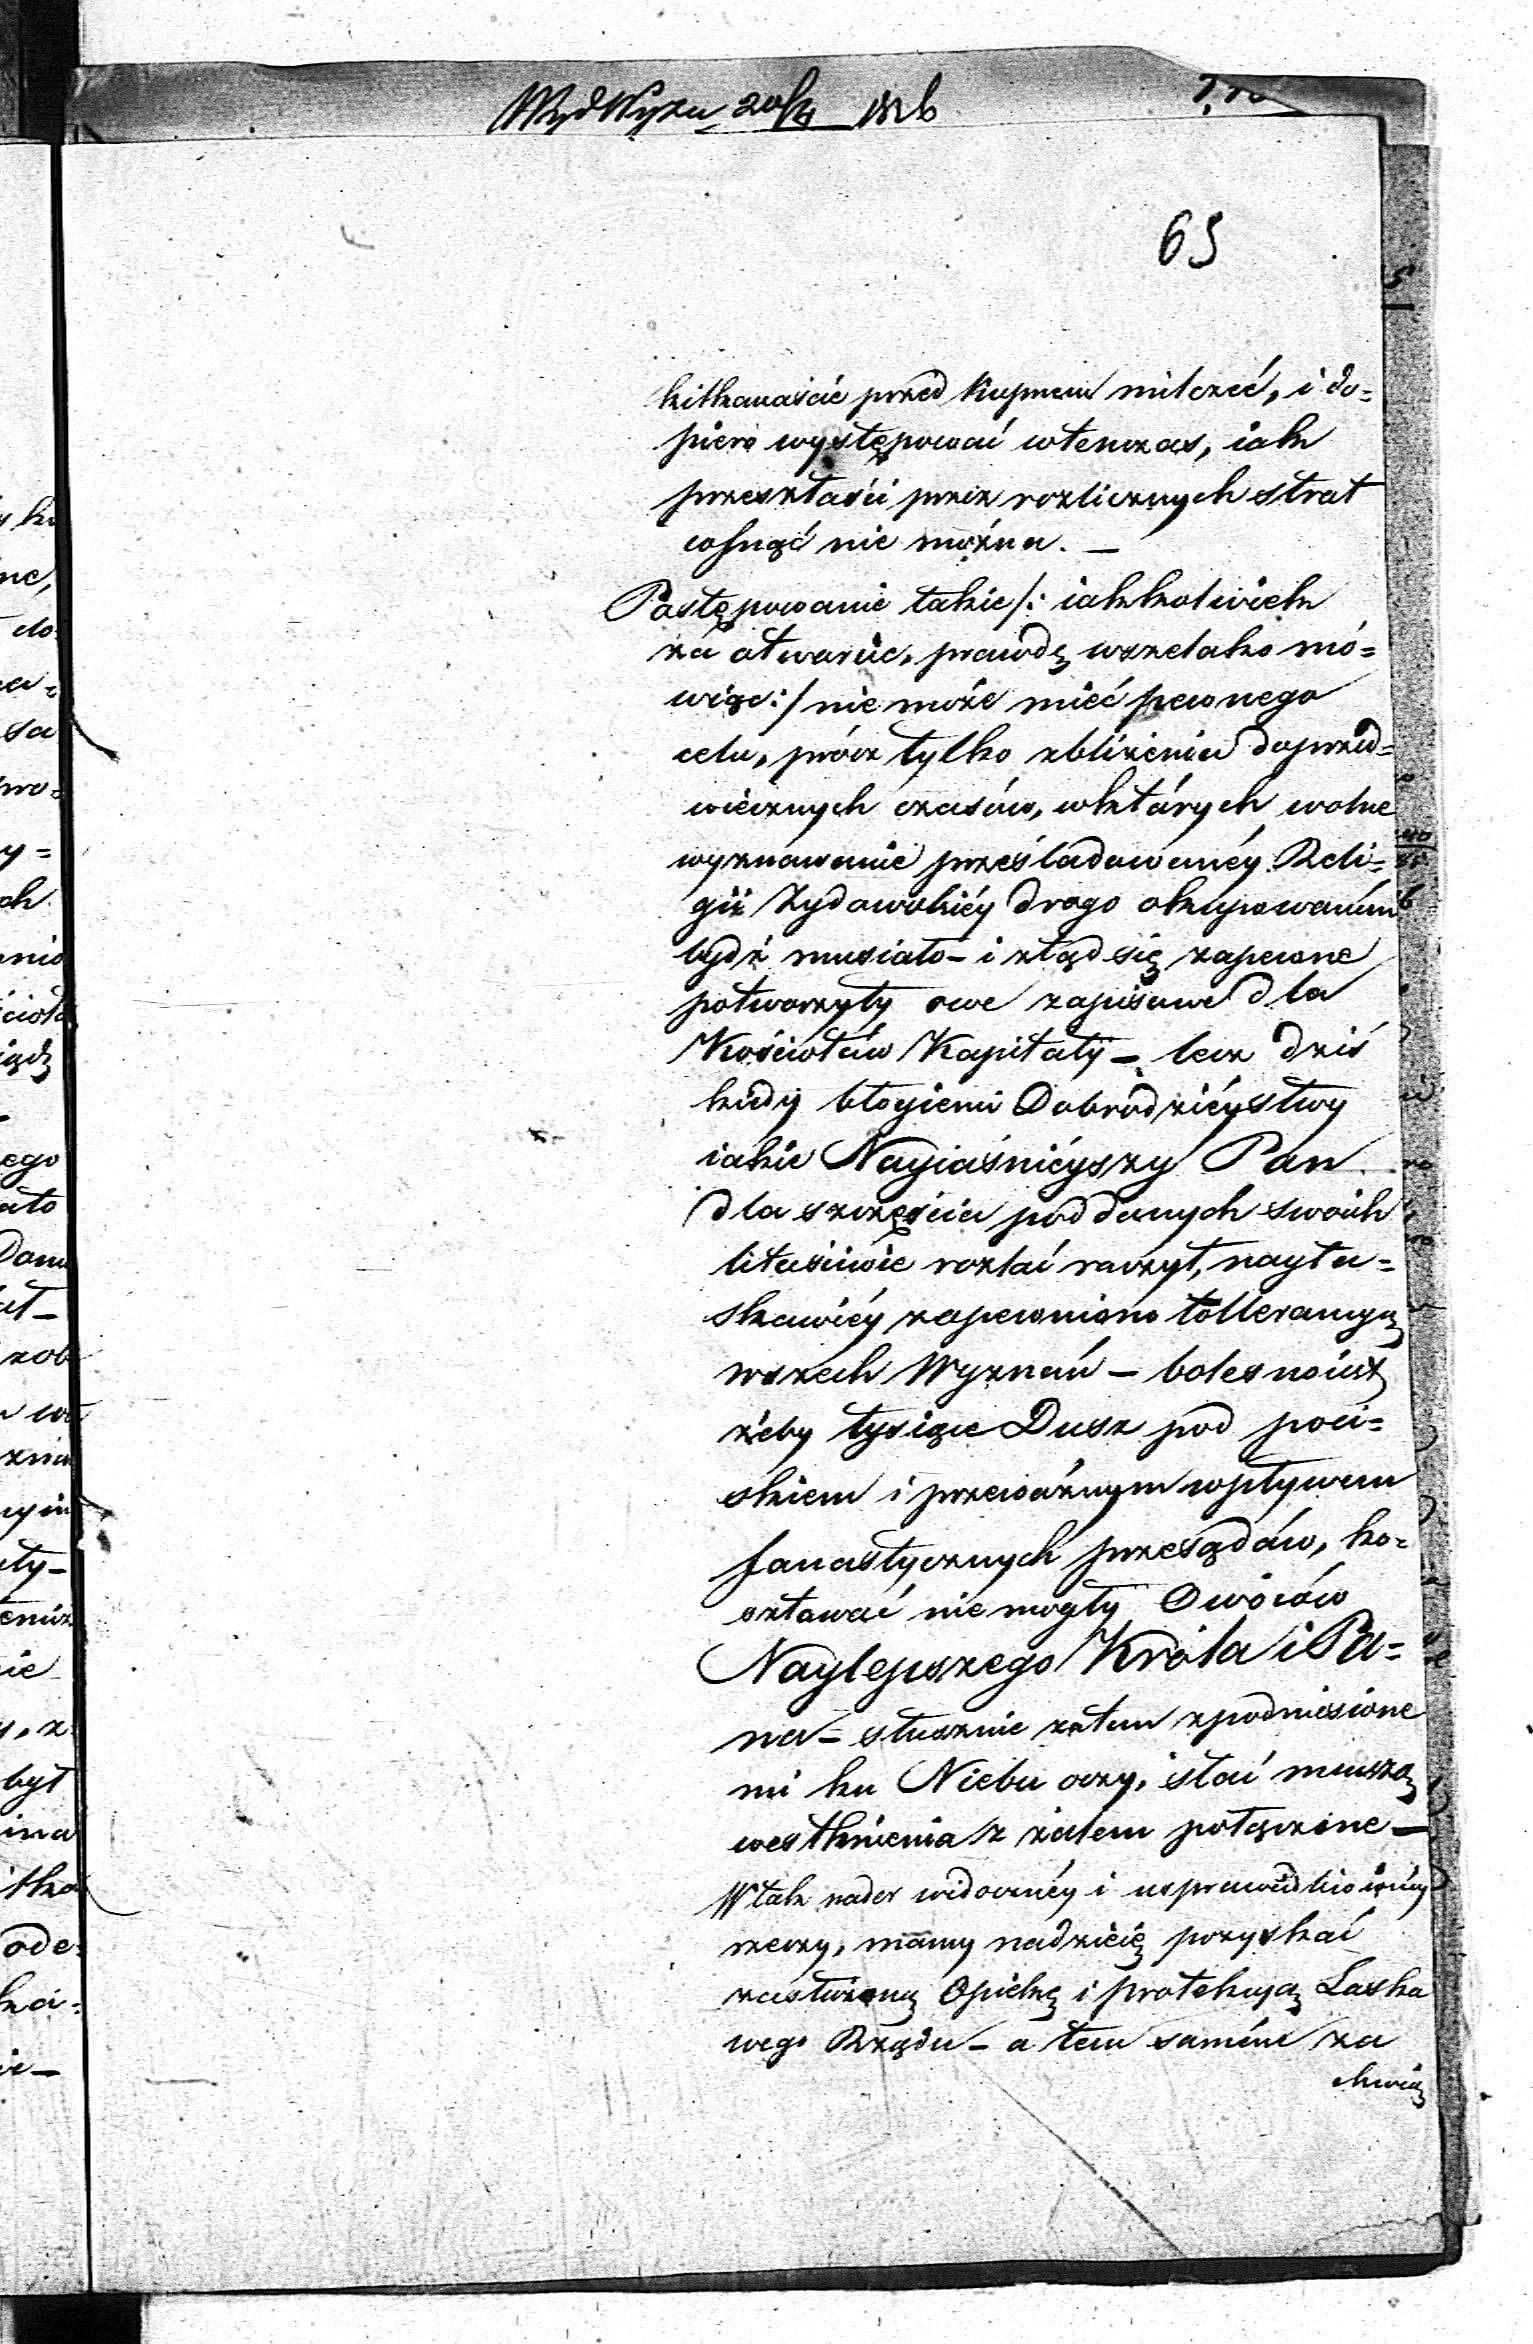 20/4 1826
65
kilkanaście przed kupnem milczeć, i do=
piero występować wtenczas, iak
przeszłości przez rozlicznych strat
cofnąć nie można. —
Postępowanie takie /: iakkolwiek
za otwarcie, prawdę wszelako mó=
wiąc :/ nie może mieć pewnego
celu, prócz tylko zbliżenia doprzed=
wiecznych czasów, wktórych wolne
wyznawanie prześladowanéy Reli=
gii Żydowskiéy drogo okupowaném
bydź musiało – i ztąd się zapewne
potworzyły owe zapisane dla
Kościołów Kapitały – lecz dziś
kiedy błogiemi Dobrodzieystwy
iakie Nayiaśniéyszy Pan
dla szczęścia poddanych swoich
litościwie rozlać raczył, nayła=
skawiéy zapewniono tollerancyą
wszech Wyznań – boleśno iest
żeby tysiące Dusz pod poci=
skiem i przeważnym wpływem
fanastycznych przesądów, ko=
sztować niemogły Owoców
Naylepszego Króla i Pa=
na – słusznie zatem zpodniesione
mi ku Niebu oczy, słać muszą
westknienia z żalem połączone —
W tak nader widocznéy i usprawiedliwionéy
rzeczy, mamy nadzieię pozyskać
zasłużoną Opiekę i protekcyą Laska
wego Rządu – a tem samém za
chwią